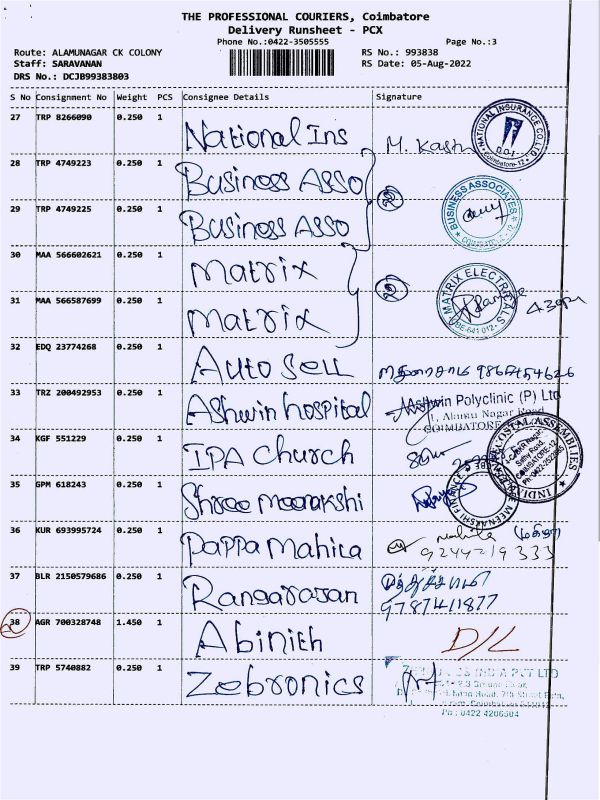 THE PROFESSIONAL COURIERS, Coimbatore
Delivery Runsheet - PCX
Phone No.:0422-3505555 Page No.:3
Route: ALAMUNAGAR CK COLONY RS No.: 993838
Staff: SARAVANAN RS Date: 05-Aug-2022
DRS No.: DCJB99383803
S No Consignment No Weight PCS Consignee Details Signature
27 TRP 8266090 0.250 1 National Ins M. Kasth
NATIONAL INSURANCE CO.LTD
D.O.I
Coimbatore-12
28 TRP 4749223 0.250 1 Business Asso
29 TRP 4749225 0.250 1 Business Asso 2
BUSINESS ASSOCIATES
30 MAA 566602621 0.250 1 Matrix
31 MAA 566587699 0.250 1 Matrix 2
MATRIX ELECTRICALS
CBE-641 012
32 EDQ 23774268 0.250 1 Auto Sell
33 TRZ 200492953 0.250 1 Ashwin hospital
Ashwin Polyclinic (P) Ltd
1, Alamu Nagar Road
COIMBATORE
34 KGF 551229 0.250 1 IPA Church
35 GPM 618243 0.250 1 Shree Meenakshi
36 KUR 693995724 0.250 1 Pappa Mahila
9244219333
37 BLR 2150579686 0.250 1 Rangarasan
9787411877
38 AGR 700328748 1.450 1 Abinith D/L
39 TRP 5740882 0.250 1 Zebronics
INDIA PVT LTD
Ph : 0422 4206504